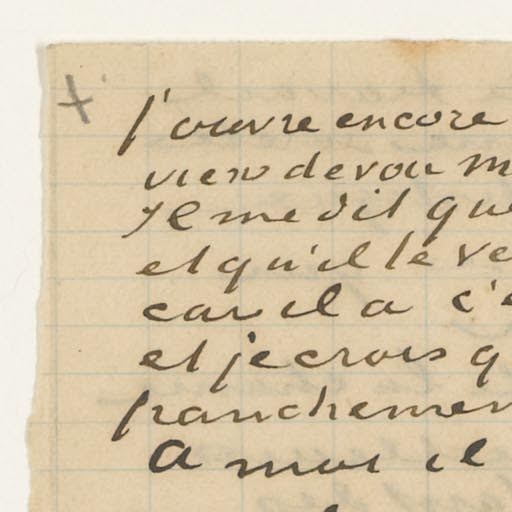 J'ouvre encore
viens devou m
Il me dit que
et qu'il le ve
car il a c'e
et je crois q
franchemen
A moi il